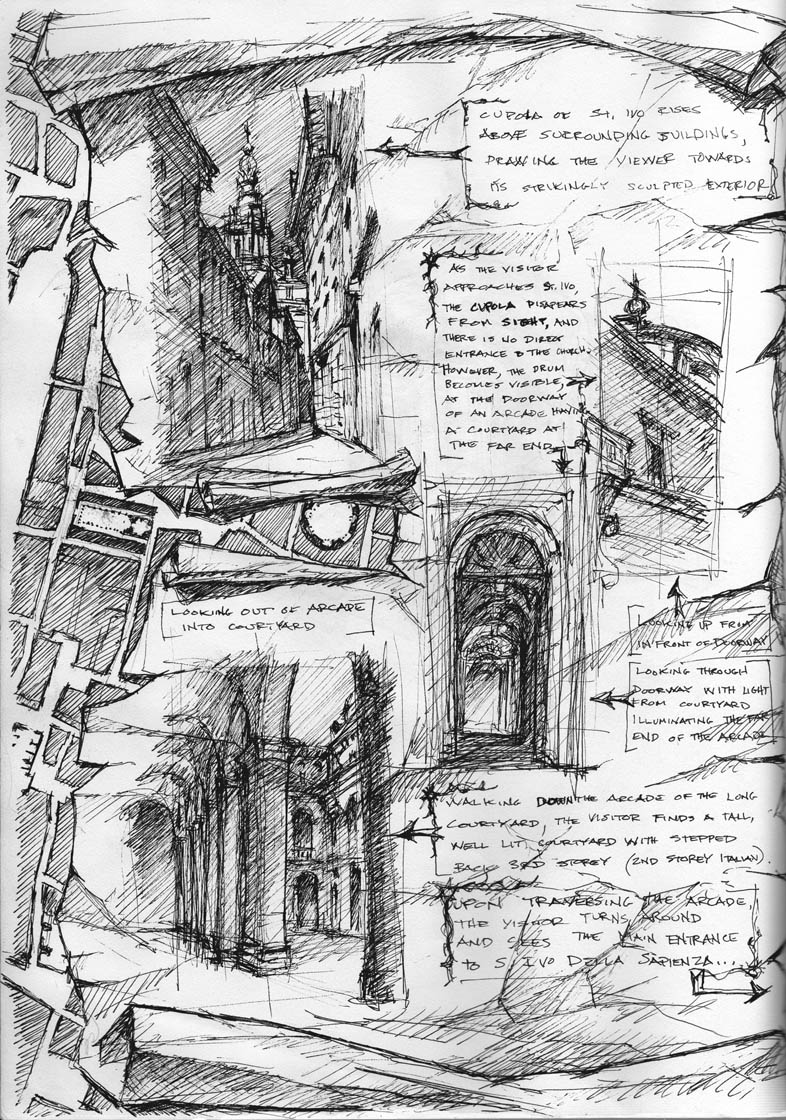 CUPOLA OF St. IVO RISES
ABOVE SURROUNDING BUILDINGS,
DRAWING THE VIEWER TOWARDS
ITS STRIKINGLY SCULPTED EXTERIOR
AS THE VISITOR
APPROACHES St. IVO,
THE CUPOLA DISAPEARS
FROM SIGHT, AND
THERE IS NO DIRECT
ENTRANCE TO THE CHURCH.
HOWEVER, THE DRUM
BECOMES VISIBLE,
AT THE DOORWAY
OF AN ARCADE HAVING
A COURTYARD AT
THE FAR END
LOOKING OUT OF ARCADE
INTO COURTYARD
LOOKING UP FROM
IN FRONT OF DOORWAY
LOOKING THROUGH
DOORWAY WITH LIGHT
FROM COURTYARD
ILLUMINATING THE FAR
END OF THE ARCADE
WALKING DOWN THE ARCADE OF THE LONG
COURTYARD, THE VISITOR FINDS A TALL,
WELL LIT COURTYARD WITH STEPPED
BACK 3RD STOREY (2ND STOREY ITALIAN).
UPON TRAVERSING THE ARCADE,
THE VISITOR TURNS AROUND
AND SEES THE MAIN ENTRANCE
to S. IVO DELLA SAPIENZA...